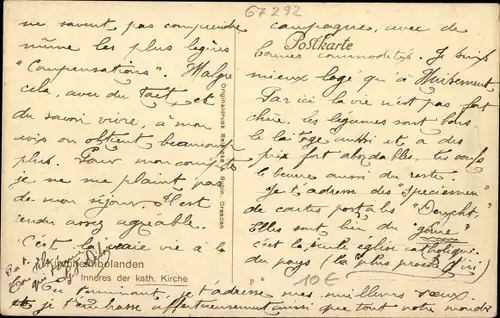 67292
ne savent pas comprendre
même les plus légères
"Compensations". Malgré
cela, avec du tact et
du savoir vivre, à mon
avis on obtient beaucoup
plus. Pour mon compte
je ne me plaint pas
de mon séjour. Il est
rendu assez agréable.
C'est la vraie vie à la
campagne, avec de
bonnes commodités. Je suis
mieux logé qu'à
Par ici la vie n'est pas fort
chère, les légumes sont bons
le laitage aussi et à des
prix fort abordables, les oeufs
le beurre aussi du reste.
Je t'adresse des "specimen"
de cartes postales
Elles sont bien du "genre"
c'est la seule église catholique
du pays (la plus proche d'ici)
En terminant, je t'adresse mes meilleurs voeux.
et je t'embrasse affectueusement ainsi que tout notre monde
Postkarte
Originaldruck Dresden
Kirchheimbolanden
Inneres der kath. Kirche
10€